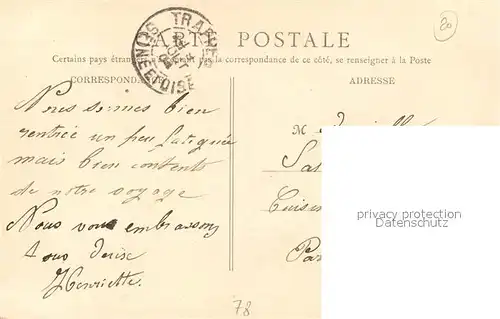 CARTE POSTALE
Certains pays étrangers n'acceptant pas la correspondance de ce côté, se renseigner à la Poste
CORRESPONDANCE
ADRESSE
TRAPPES
SEINE-ET-OISE
20
Nous sommes bien
rentrée un peu fatiguée
mais bien contents
de notre voyage
Nous vous embrassons
tous
Henriette.
M
Par
privacy protection
Datenschutz
78